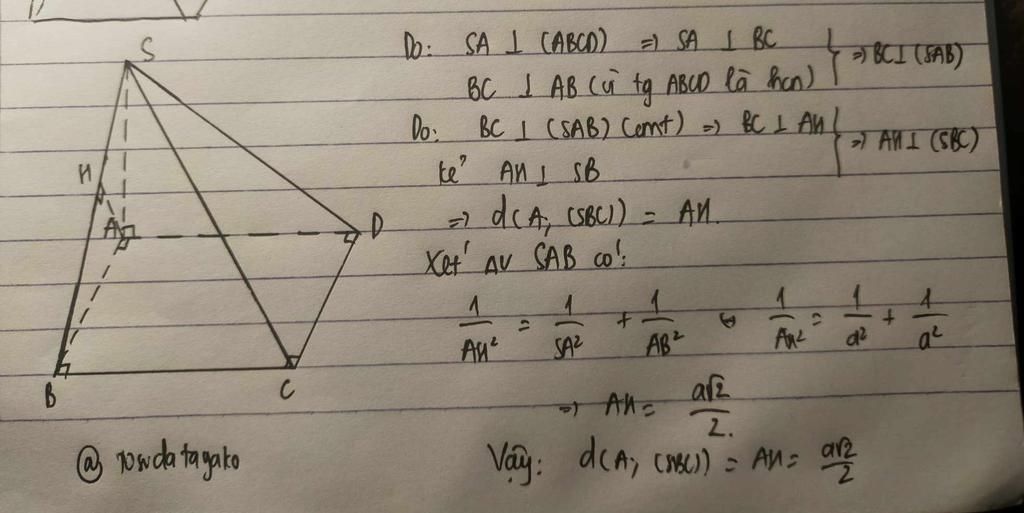 S
H
A
D
B
C
@ rowdatagako
Do: SA ⊥ (ABCD) => SA ⊥ BC
BC ⊥ AB (vì tg ABCD là hcn)
} => BC ⊥ (SAB)
Do: BC ⊥ (SAB) (cmt) => BC ⊥ AH
kẻ AH ⊥ SB
} => AH ⊥ (SBC)
=> d(A; (SBC)) = AH.
Xét ΔV SAB có:
1/AH² = 1/SA² + 1/AB² ⇔ 1/AH² = 1/a² + 1/a²
=> AH = a√2/2.
Vậy: d(A; (SBC)) = AH = a√2/2